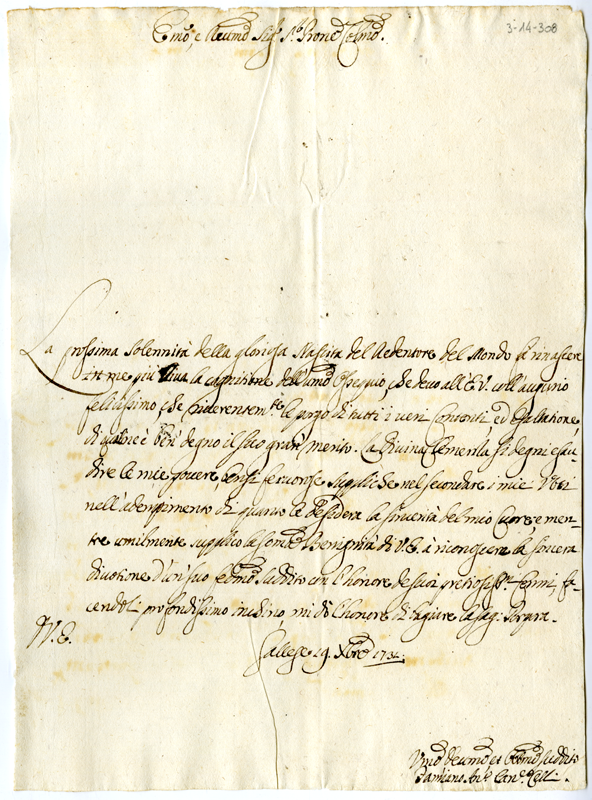 3-14-308
Emo, e Reumo Sigr Sr Prone Colmo.
La prossima Solennità della gloriosa Nascita del Redentore del Mondo fà rinascere
in me più viva la cognitione dell'umo Ossequio, che devo all'E.V. coll'augurio
felicissimo, che le porgo di tutti i veri contenti, ed esaltatione,
di quale è ben degno il suo gran merito. La divina Clemenza si degni esau-
dire le mie povere, ma fervorose suppliche nel secondare i miei Voti
nell'adempimento di quanto le desidera la sincerità del mio Cuore, e men-
tre umilmente supplico la somma Benignità di V.E. à riconoscere la sincera
divotione d'un suo suddito con l'honore de suoi pretiosissmi cenni, fa-
cendoli profondissimo inchino, mi dò l'honore di baciare la sag: Porpora.
D V.E.
Gallese 19. Xbre 1731.
Umo Devmo et Obbmo suddito
Damiano Ant